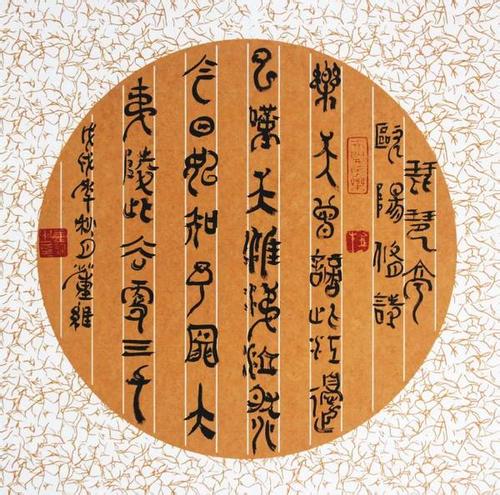 琵琶亭
歐陽修詩
樂天曾謫此江邊
已嘆天涯涕泫然
今日始知予罪大
夷陵此去更三千
戊戌年秋月董維